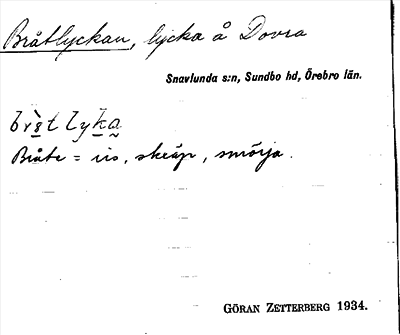 Bråtlyckan, lycka å Dovra
Snavlunda s:n, Sundbo hd, Örebro län.
Bråte = ris, skräp, smörja.
GÖRAN ZETTERBERG 1934.